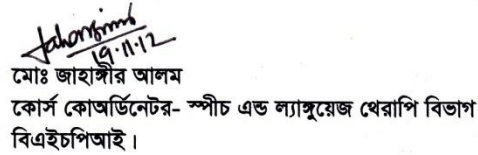 Jahangir
19.11.12
মোঃ জাহাঙ্গীর আলম
কোর্স কোঅর্ডিনেটর- স্পীচ এন্ড ল্যাঙ্গুয়েজ থেরাপি বিভাগ
বিএইচপিআই।